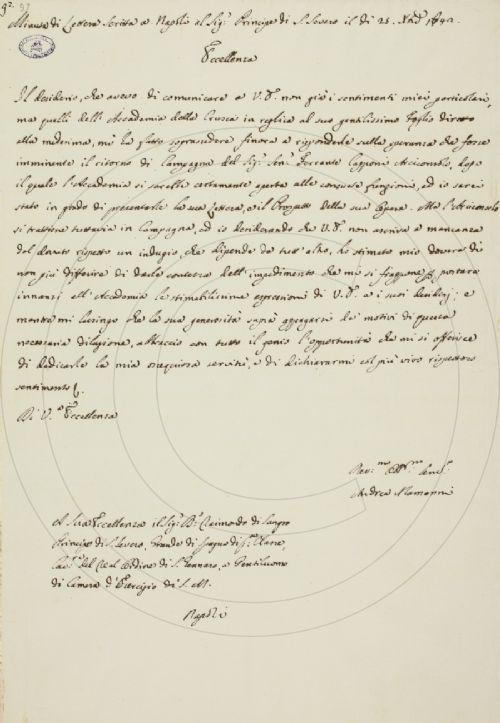 92. 97
Minuta di Lettera Scritta a Napoli al Sig.r Principe di S. Severo il dì 25. 1742.
Eccellenza
Il desiderio, che avevo di comunicare a V. E. non già i sentimenti miei particolari,
ma quelli dell'Accademia della Crusca in replica al suo gentilissimo foglio diretto
alla medesima, mi ha fatto soprasedere finora a rispondere sulla speranza che fosse
imminente il ritorno di Campagna del Sig.r Sen.r Ferrante Capponi Arciconsolo, dopo
il quale l'Accademia si sarebbe certamente aperta alle consuete funzioni, ed io sarei
stato in grado di presentarle la sua lettera, e il Prospetto della sua Opera. Ma l'Arciconsolo
si trattiene tuttavia in Campagna, ed io desiderando che V. E. non ascriva a mancanza
del dovuto rispetto un indugio, che dipende da tutt'altro, ho stimato mio dovere di
non più differire di darle contezza dell'impedimento che mi si frappone per portare
innanzi all'Accademia le stimatissime espressioni di V. E. e i suoi desiderj; e
mentre mi lusingo che la sua generosità sappia appagarsi de' motivi di questa
necessaria dilazione, abbraccio con tutto il genio l'opportunità che mi si offerisce
di dedicarle la mia ossequiosa servitù, e di dichiararmi col più vivo rispettoso
sentimento
Di V.a Eccellenza
Andrea Alamanni
A Sua Eccellenza il Sig.r D. Raimondo di Sangro
Principe di S. Severo, Grande di Spagna di P.a Classe,
Cav.e del Real Ordine di S. Gennaro, e Gentiluomo
di Camera d'Esercizio di S. M.
Napoli